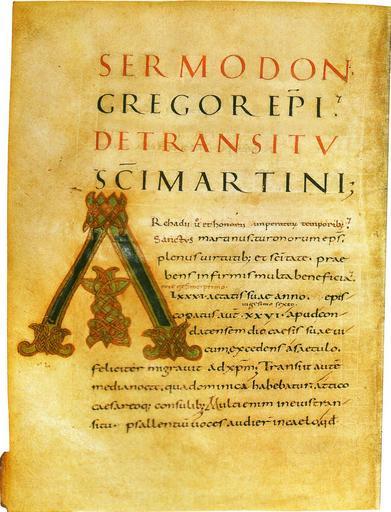 SERMO DON
GREGOR EP̄I
DE TRANSITV
SC̄I MARTINI;
A
Rchadii ū et honorii imperatorū temporibȝ
Sanctus martinus turonorum eps
plenus virtutibȝ et sc̄itate prae
bens infirmis multa beneficia
LXXXI aetatis suae anno. epis
vigesimo sexto
copatus aūt XXVI apud con
datensem diocaesis suae vi
cum excedens a saeculo.
feliciter migravit ad xp̄m; Transiit autē
media nocte, qua dominica habebatur, attico
caesareoq; consulibȝ; Multi enim in eius tran
situ psallentiū voces audier̄ in caelo, qd̄